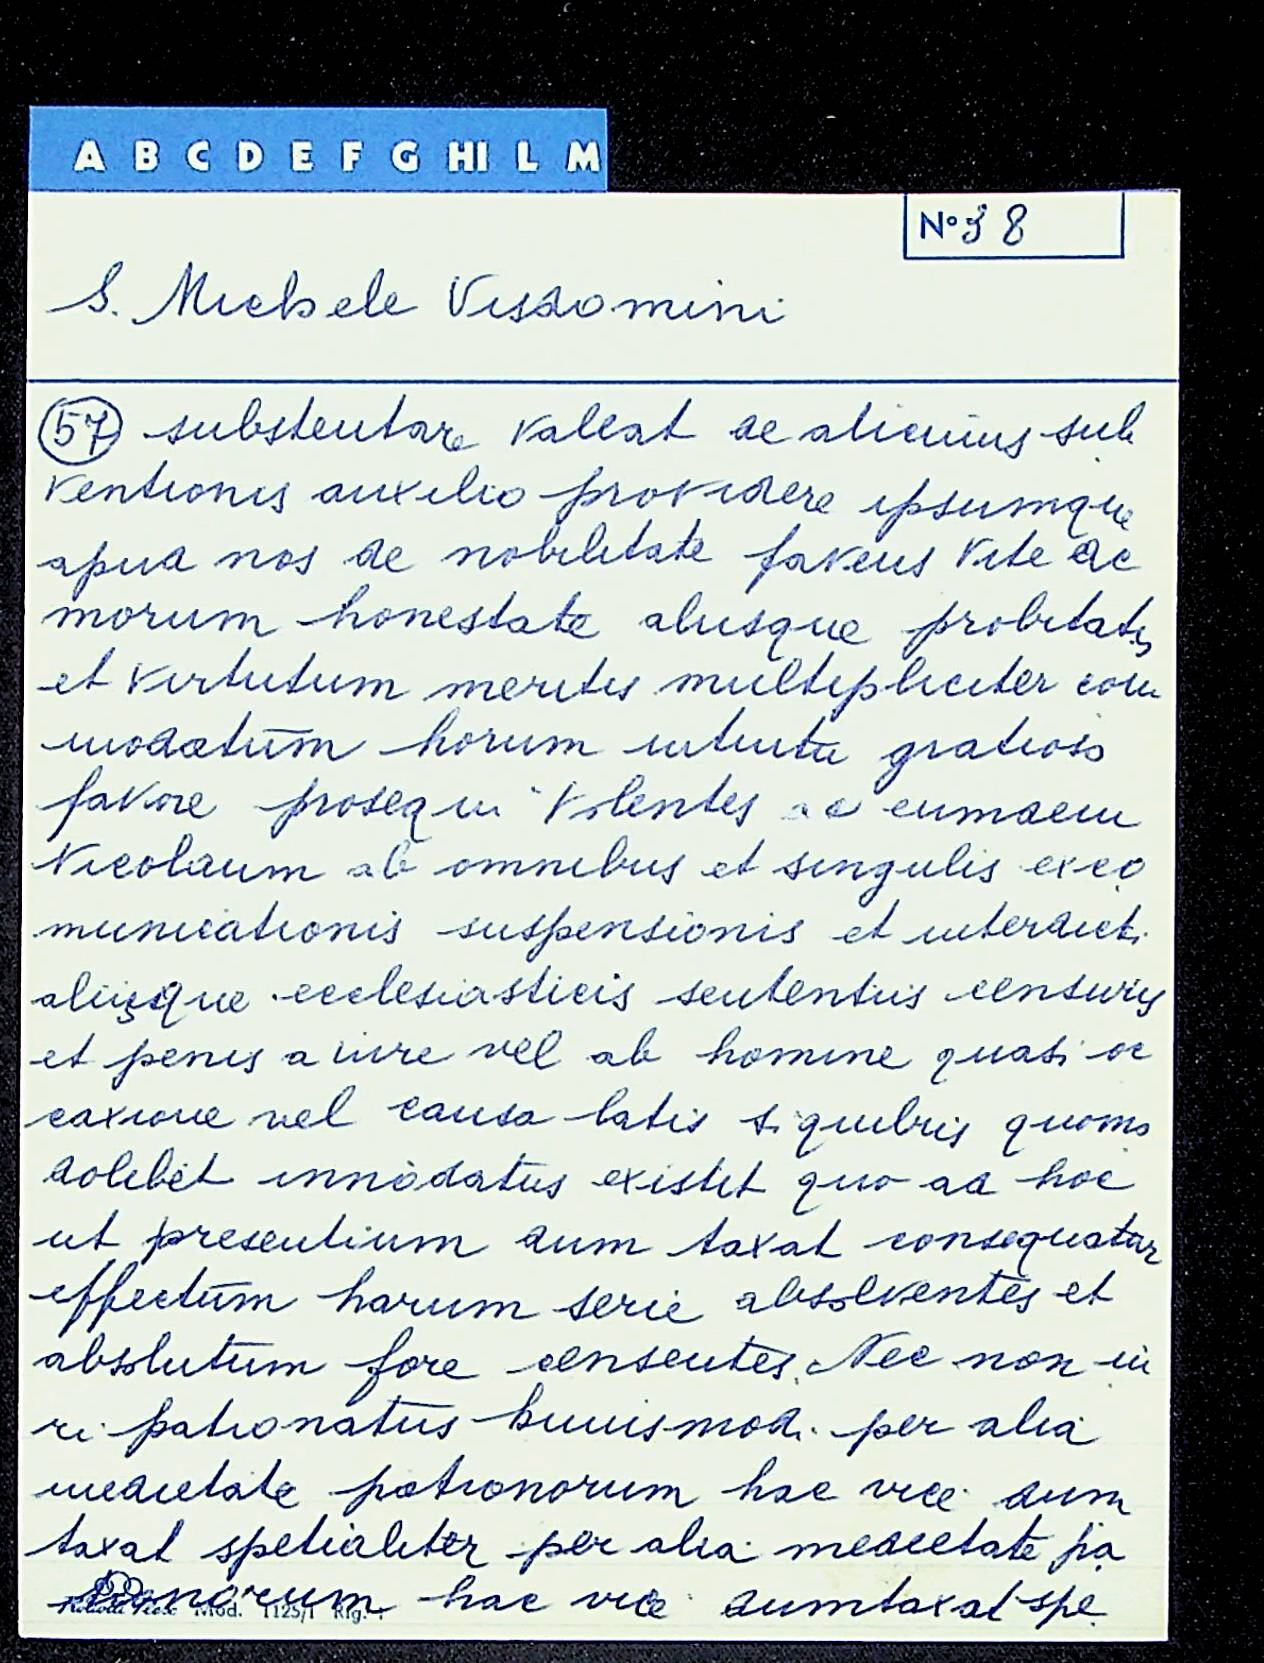 A B C D E F G HI L M
N° 38
S. Michele Visdomini
57 substentare valeat de alicuius sub
ventionis auxilio providere ipsumque
apud nos de nobilitate faveus vite ac
morum honestate aliisque probitatis
et virtutum meritis multipliciter com
modatum horum intuitu gratioso
favore prosequi volentes ac eumdem
Nicolaum ab omnibus et singulis exco
municationis suspensionis et interdicti
aliisque ecclesiasticis sententiis censuris
et penis a iure vel ab homine quasi oc
caxione vel causa latis si quibris quomo
dolibet innodatus existit quo ad hoc
ut presentium dum taxat consequatur
effectum harum serie absolventes et
absolutum fore censentes. Nec non iu
ri patronatus huiusmodi per alia
medietate patronorum hac vice dum
taxat spetialiter per alia medietate pa
tronorum hac vice dumtaxat spe
Mod. 1125/1 Rig.